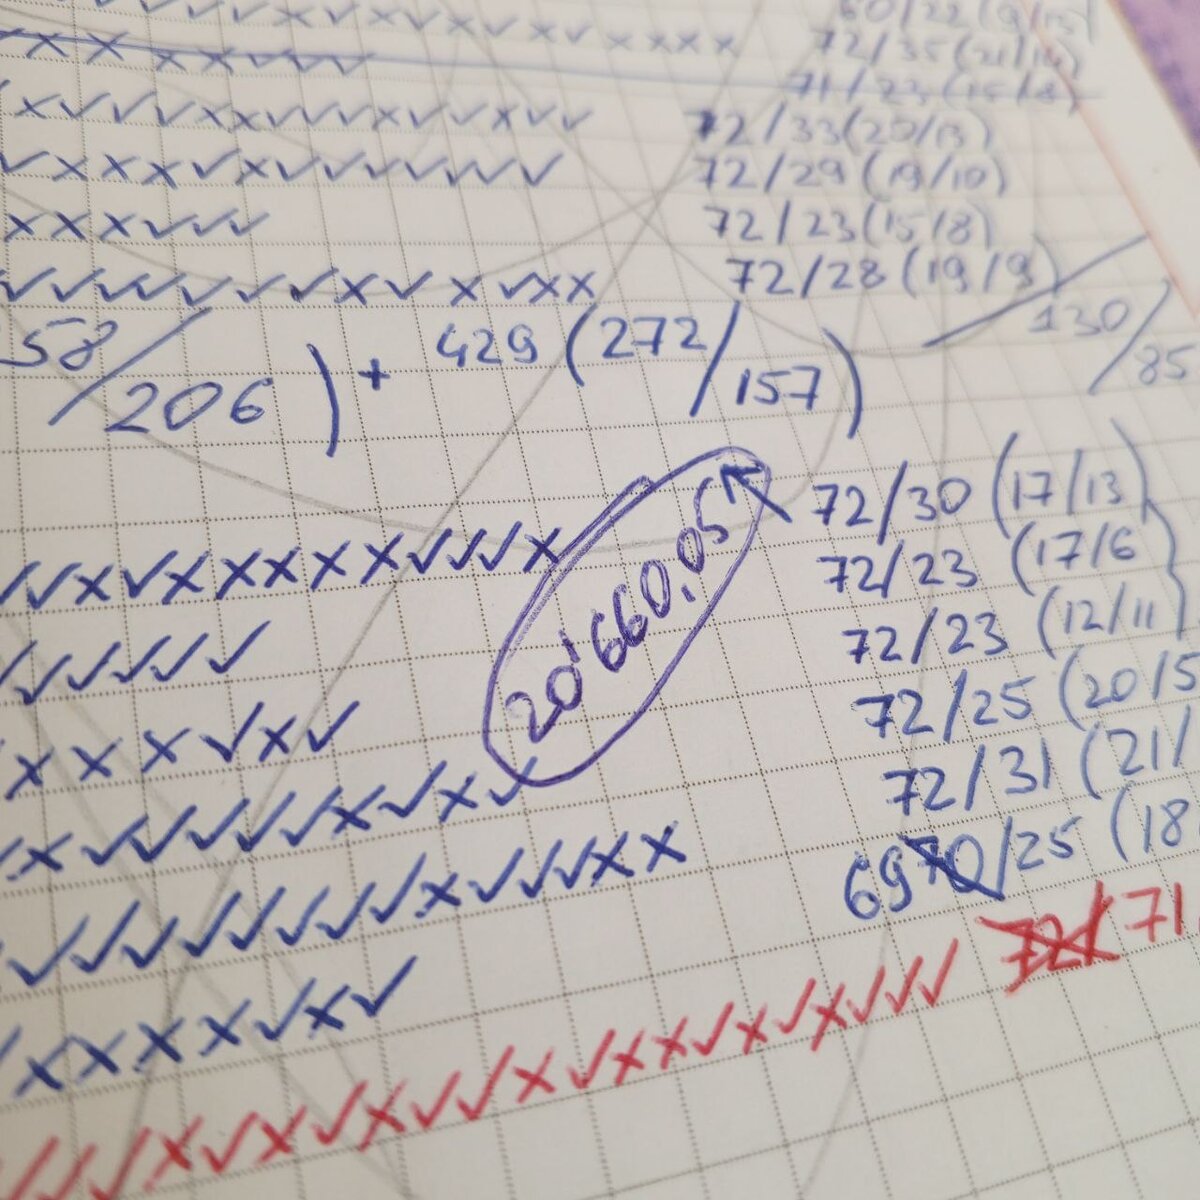 60/22 (9/13)
72/35 (21/14)
71/23 (15/8)
72/33 (20/13)
72/29 (19/10)
72/23 (15/8)
72/28 (19/9)
58/206) + 429 (272/157)
130/85
20'660,05
72/30 (17/13)
72/23 (17/6
72/23 (12/11)
72/25 (20/5
72/31 (21/
69 70/25 (18
72/ 71